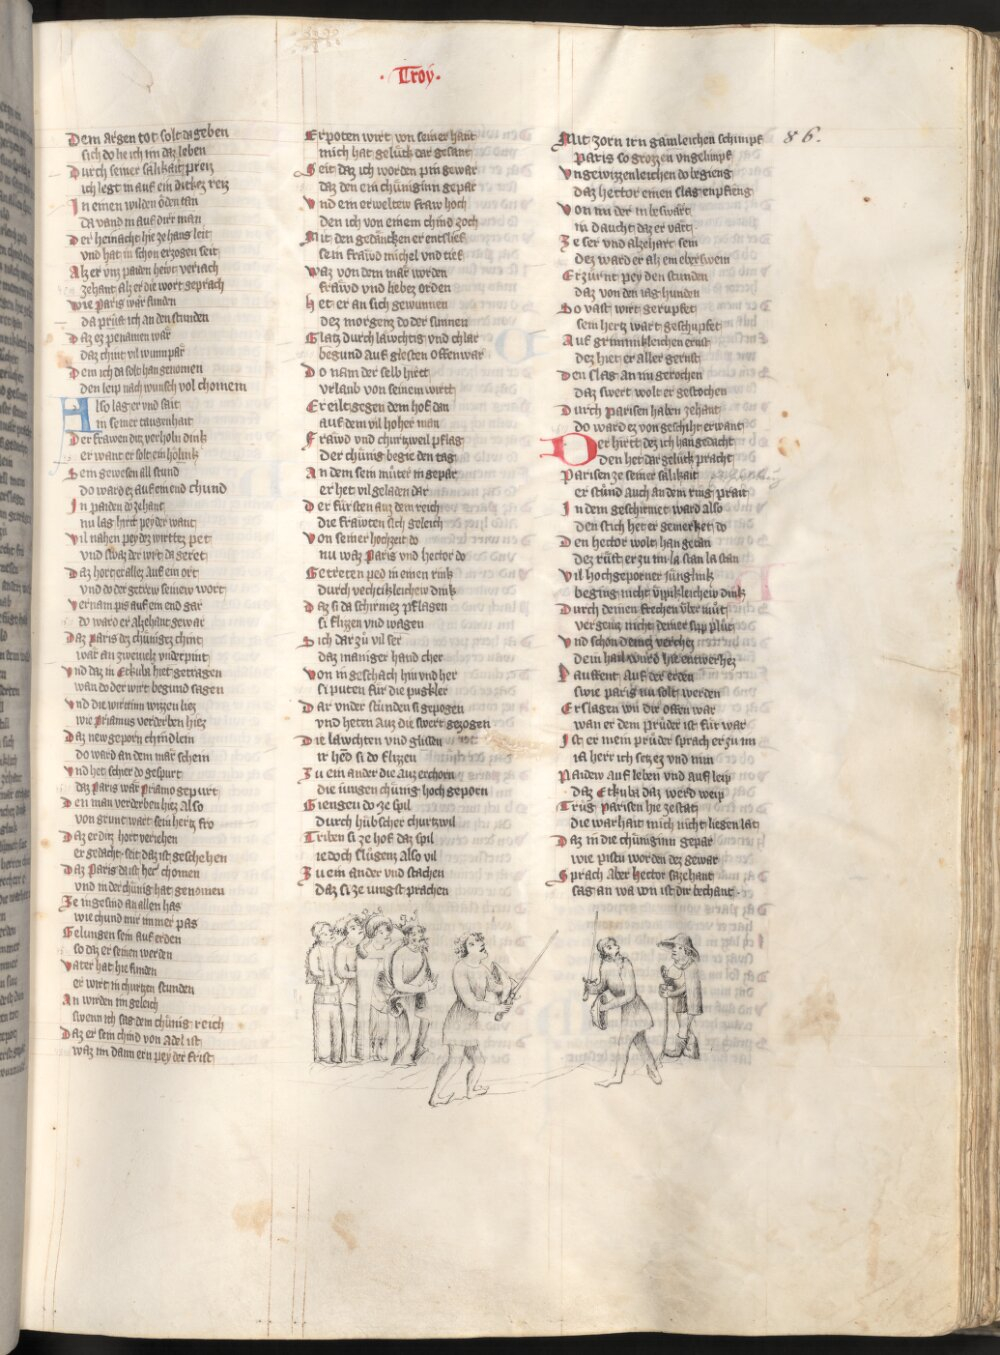 · Troÿ ·
86.
Dem argen tot solt da geben
sich do he ich im daz leben
Durch seiner salikait preiz
ich legt in auf ein dickez reiz
In einen wilden öden tan
da vand in auf dirr man
Der heinacht hie ze haus leit
und hat in schon erzogen seit
Alz er unz paiden hewt veriach
zehant alz er die wort gesprach
wie Paris war funden
da prüft ich an den stunden
Daz ez penamen wär
daz chint vil wunnpär
Dem ich da solt han genomen
den leip nach wunsch vol chomen
Also lag er und sait
in seiner taugenhait
Der frawen diz verholn dink
er want er solt ein hölink
Sem gewesen all stund
do ward ez auf ein end chund
In paiden do zehant
nu lag hirtt pey der want
Vil nahen pey dez wirttez pet
und swaz der wirt da geret
Daz hort er allez auf ein ort
und do der getrew seinew wort
Vernam pis auf ein end gar
do ward er alzehant gewar
Daz Paris dez chünigez chint
war an zweivelz underpint
Und daz in Etkuba hiet getragen
wan do der wirt begund sagen
Und die wirttinn wizzen liez
wie Priamus verderben hiez
Daz newgeporn chindlein
do ward an dem mär schein
Und het schier do gespurt
daz Paris wär Priamo gepurt
Den man verderben hiez also
von grunt wart sein hertz fro
Daz er ditz hort veriehen
er gedacht · seit daz ist geschehen
Daz Paris da ist her chomen
und in der chünig hat genomen
Ze ingesind an allen has
wie chund mir immer pas
Gelungen sein auf erden
so daz er seinen werden
Vater hat hie funden
er wirt in churtzen stunden
An wirden im geleich
swenn ich sag dem chünig reich
Daz er sein chind von adel ist
waz im dann ern pey der frist
Erpoten wirt von seiner hant
mich hat gelück dar gesant
Seit daz ich worden pin gewar
daz den ein chüniginn gepar
Und ein erweltew fraw hoch
den ich von einem chind zoch
Mit den gedäncken er entslief
sein frawd michel und tief
Waz von dem mär worden
frawd und liebez orden
Het er an sich gewunnen
dez morgenz do der sunnen
Glatz durch lawchtig und chlar
begund auf glesten offenwar
Do nam der selb hirtt
urlaub von seinem wirtt
Er eilt gegen dem hof dan
auf dem vil hoher man
Frawd und churtzweil pflag
der chünig begie den tag
An dem sein müter in gepar
er het vil geladen dar
Der fürsten auz dem reich
die frawten sich geleich
Von seiner hochzeit do
nu waz Paris und hector do
Getreten ped in einen rink
durch vechtikleichew dink
Daz si da schirmez pflagen
si flizen und wagen
Sich dar zü vil ser
daz maniger hand cher
Von in geschach hin und her
si puten für die pukler
Dar under stunden si gepogen
und heten auz die swert gezogen
Die lawchten und glissen
ir hend si do flizen
Zu ein ander die auz erchorn
die iungen chünig hoch geporn
Giengen do ze spil
durch hübscher churtzwil
Triben si ze hof daz spil
iedoch slügenz also vil
Zu ein ander und stachen
daz si ze iungst prachen
Mit zorn irn gämleichen schimpf
Paris so grozzen ungelimpf
Ungewizzenleichen do begieng
daz hector einen slag enpfieng
Von im der in beswärt
in daucht daz er värt
Ze ser und alzehart sein
dez ward er alz ein eberswein
Erzürnt pey den stunden
daz von den iaghunden
So vast wirt gerupfet
sein hertz wart geschupfet
Auf grimmikleichen ernst
dez hiet er aller gernst
Den slag an im gerochen
daz swert wolt er gestochen
Durch Parisen haben zehant
do ward ez von geschiht erwant
Der hirtt dez ich han gedacht
den het dar gelück pracht
Parisen ze seiner salikait
er stünd auch an dem ring prait
In dem geschirmet ward also
den stich het er gemerket do
Den hector wolt han getan
dez rüft er zu im · la stan la stan
Vil hochgeporner jünglink
beging nicht unpilleichew dink
Durch deinen frechen uber müt
vergeuz nicht deiner sipp plüt
Und schon deinez verchez
dem
Auffent auf der erden
swie paris nu solt werden
Erslagen wii dir offen war
wan er dem prüder ist für war
Ist er mein prüder sprach er zu im
ia herr ich setzez und nim
Paidew auf leben und auf leip
daz Etkuba daz werd weip
Trüg Parisen hie ze stat
die warhait mich nicht liegen lat
Daz in die chüniginn gepar
wie pistu worden dez gewar
Sprach aber hector sazehant
sag an wa von ist dir bechant ·